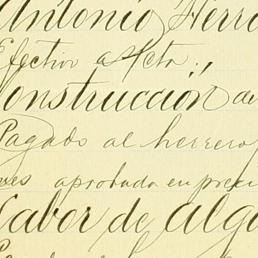 Antonio Herr
Efectivo a Cta.
Construcción de
Pagado al herrero,
aprobada en
Labor de Alg